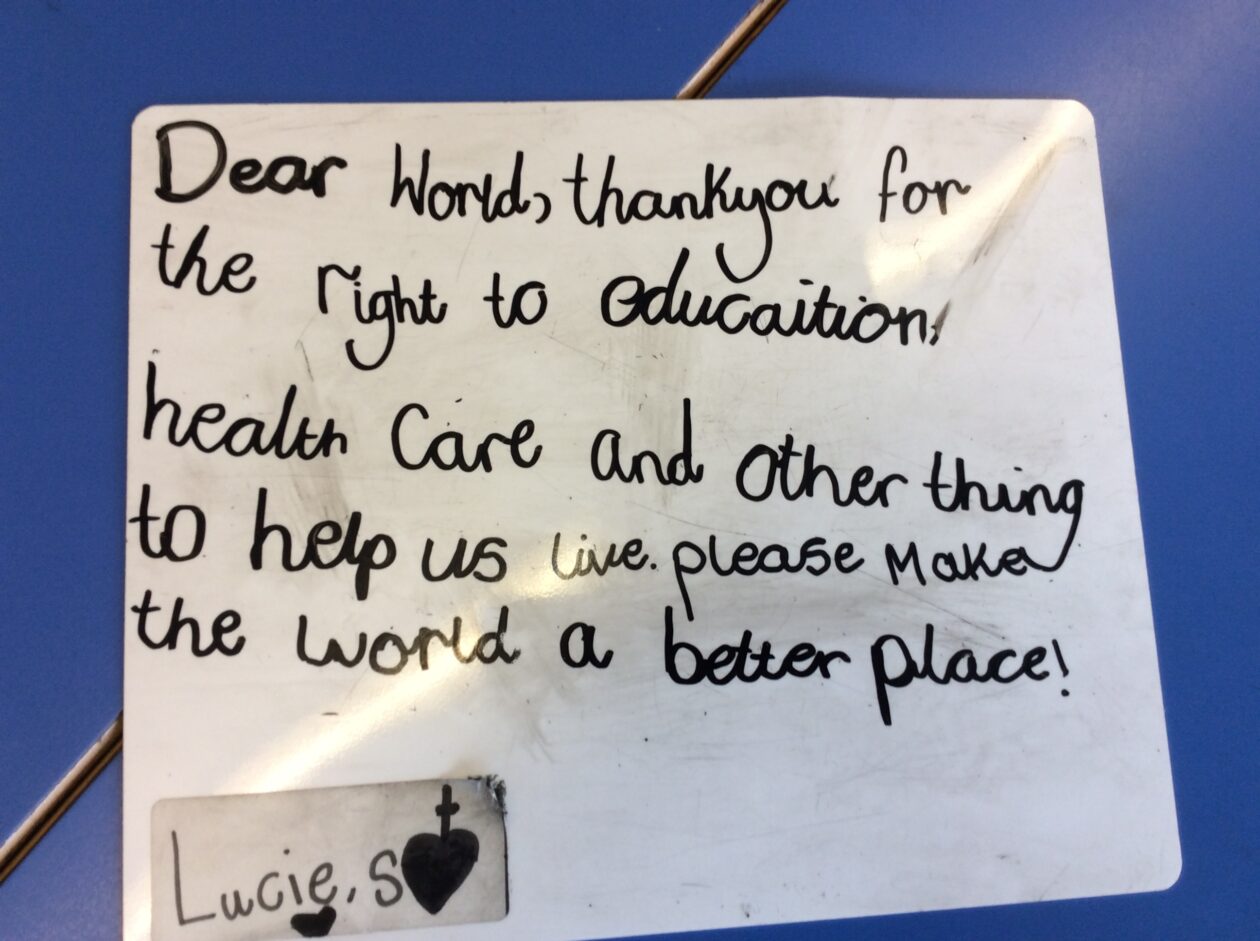 Dear World, thankyou for
the right to educaition,
health Care and other thing
to help us live. please Make
the world a better place!
Lucie.s